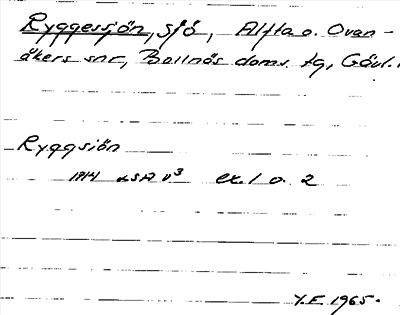 Ryggessjön, sjö, Alfta o. Ovan-
åkers snr, Bollnäs doms. tg, Gävl.
Ryggsiön
1714 LSA V3 ex. 1 o. 2
Y.E. 1965.